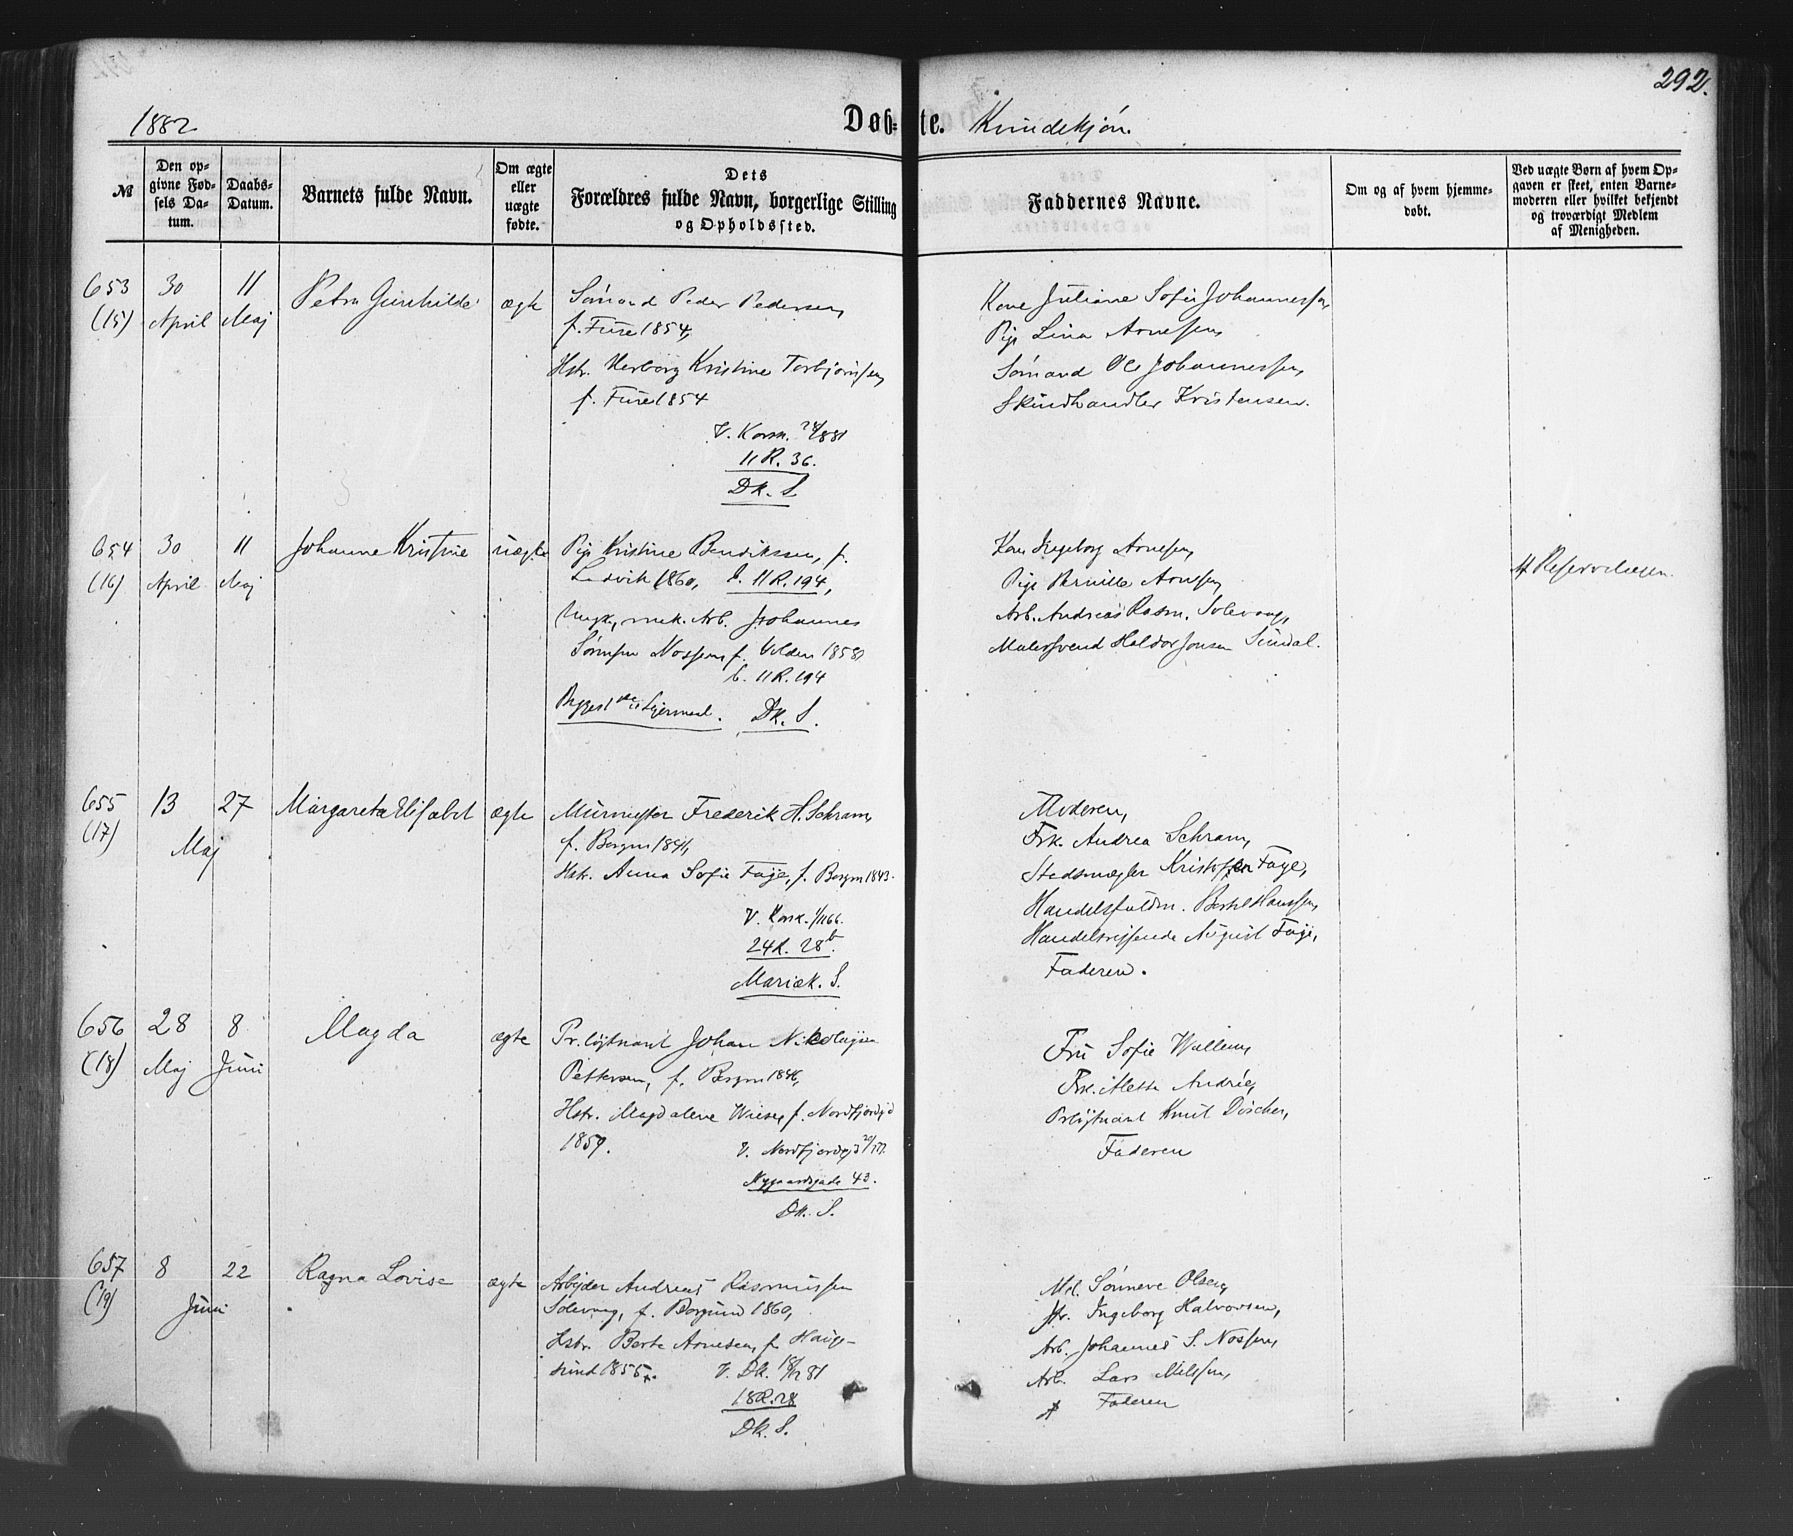 292.
1882
Døbte. Kvindekjøn.
№
Den opgivne Fødsels Datum.
Daabs-Datum.
Barnets fulde Navn.
Om ægte eller uægte fødte.
Dets Forældres fulde Navn, borgerlige Stilling og Opholdssted.
Faddernes Navne.
Om og af hvem hjemmedøbt.
Ved uægte Børn af hvem Opgaven er skeet, enten Barnemoderen eller hvilket bekjendt og troværdigt Medlem af Menigheden.
653 30 11 Petra Gunhilde ægte Sømand Peder Pedersen,
(15) April Maj f. Fure 1854,
Hstr. Herborg Kristine Torbjørnsen
f. Fure 1854
V. Korsk. 1881
11 R. 36.
Dk. S.
Kone Juliane Sofie Johannessen
Pige Lina Arnesen,
Sømand Ole Johannessen,
Skindhandler Kristensen.
654 30 11 Johanne Kristine uægte Pige Kristine Bendiksen, f.
(16) April Maj Ladvik 1860, b. 11 R. 194,
Ungk., mek. Arb. Johannes
Nossen, f. 1858
b. 11 R. 194
Begges 1ste Lejermaal. Dk. S.
Kone Ingeborg Arnesen,
Pige Pernille Arnesen,
Arb. Andreas Rasm. Solevaag,
Malersvend Haldor Jonsen Sundal.
655 13 27 Margareta Elisabet ægte Murmester Frederik H. Schram,
(17) Maj f. Bergen 1841,
Hstr. Anna Sofie Faye, f. Bergen 1843.
V. Korsk. 1866.
24 R. 28b.
Mariæk. S.
Moderen,
Frk. Andrea Schram,
Stadsmægler Kristoffer Faye,
Handelsfuldm. Bertel Hanssen,
Handelsreisende August Faye,
Faderen.
656 28 8 Magda ægte Pr.løjtnant Johan Nikolaysen
(18) Maj Juni Pettersen, f. Bergen 1846,
Hstr. Magdalene Wiese, f. Nordfjordejd
1857.
V. Nordfjordejd
Nygaardsgade 43.
Dk. S.
Fru Sofie Willem,
Frk. Mette Andrée,
Prløjtnant Knut Döscher,
Faderen
657 8 22 Ragna Lovise ægte Arbejder Andreas Rasmussen
(19) Juni Solevaag, f. Borgund 1860,
Hstr. Berte Arnesen, f. Haug-
sund 1855.
V. Dk. 1881
18 R. 28
Dk. S.
Md. Sønneve Olsen,
Ingeborg Halvorsen,
Arb. Johannes S. Nossen,
Arb. Lars Nilssen,
Faderen